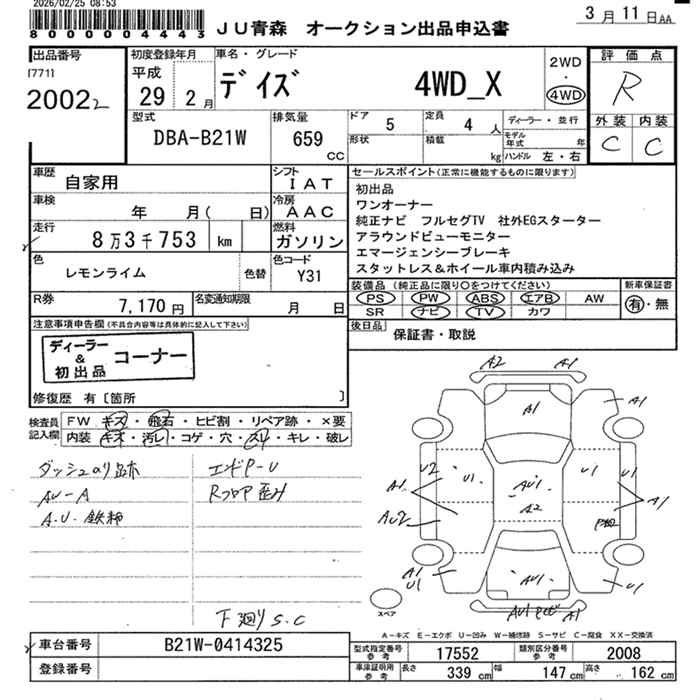 2026/02/25 08:53
8000004443
JU青森 オークション出品申込書
3月11日AA
出品番号
[771]
2002 2
初度登録年月
平成
29年 2月
車名・グレード
デイズ 4WD_X
2WD
・
4WD
評価点
R
外装 内装
C C
型式
DBA-B21W
排気量
659
CC
ドア 5
定員 4 人
形状
積載 kg
ディーラー・並行
モデル年式 年
ハンドル 左・右
車歴
自家用
シフト
IAT
車検
年 月( 日)
冷房
AAC
走行
8万3千753 km
燃料
ガソリン
色
レモンライム
色替
色コード
Y31
R券
7,170円
名変通知期限
月 日
セールスポイント(正常に機能するものに限ります)
初出品
ワンオーナー
純正ナビ フルセグTV 社外EGスターター
アラウンドビューモニター
エマージェンシーブレーキ
スタットレス&ホイール車内積み込み
装備品 (純正品に限り○をつけてください)
PS PW ABS エアB AW
SR ナビ TV カワ
新車保証書
有・無
後日品
保証書・取説
注意事項申告欄(不具合内容等は具体的に記入して下さい)
ディーラー
&
初出品
コーナー
修復歴 有〔箇所 〕
検査員
記入欄
FW キズ・飛石・ヒビ割・リペア跡・×要
内装 キズ・汚レ・コゲ・穴・スレ・キレ・破レ
ダッシュのリ跡
AU-A
A.U.鉄綿
エンドP-U
Rフロア歪み
下廻りS.C
A2 A1
A1
A1
U2 U1 U1 U1
A1 AU1 A1
A2
AU2
A1
U1
AU1
U1
AU1 A1
スペア
A-キズ E-エクボ U-凹み W-補修跡 S-サビ C-腐食 XX-交換済
車台番号
B21W-0414325
登録番号
型式指定番号
参考
17552
類別区分番号
参考
2008
車庫証明用
参考
長さ 339 cm
幅 147 cm
高さ 162 cm